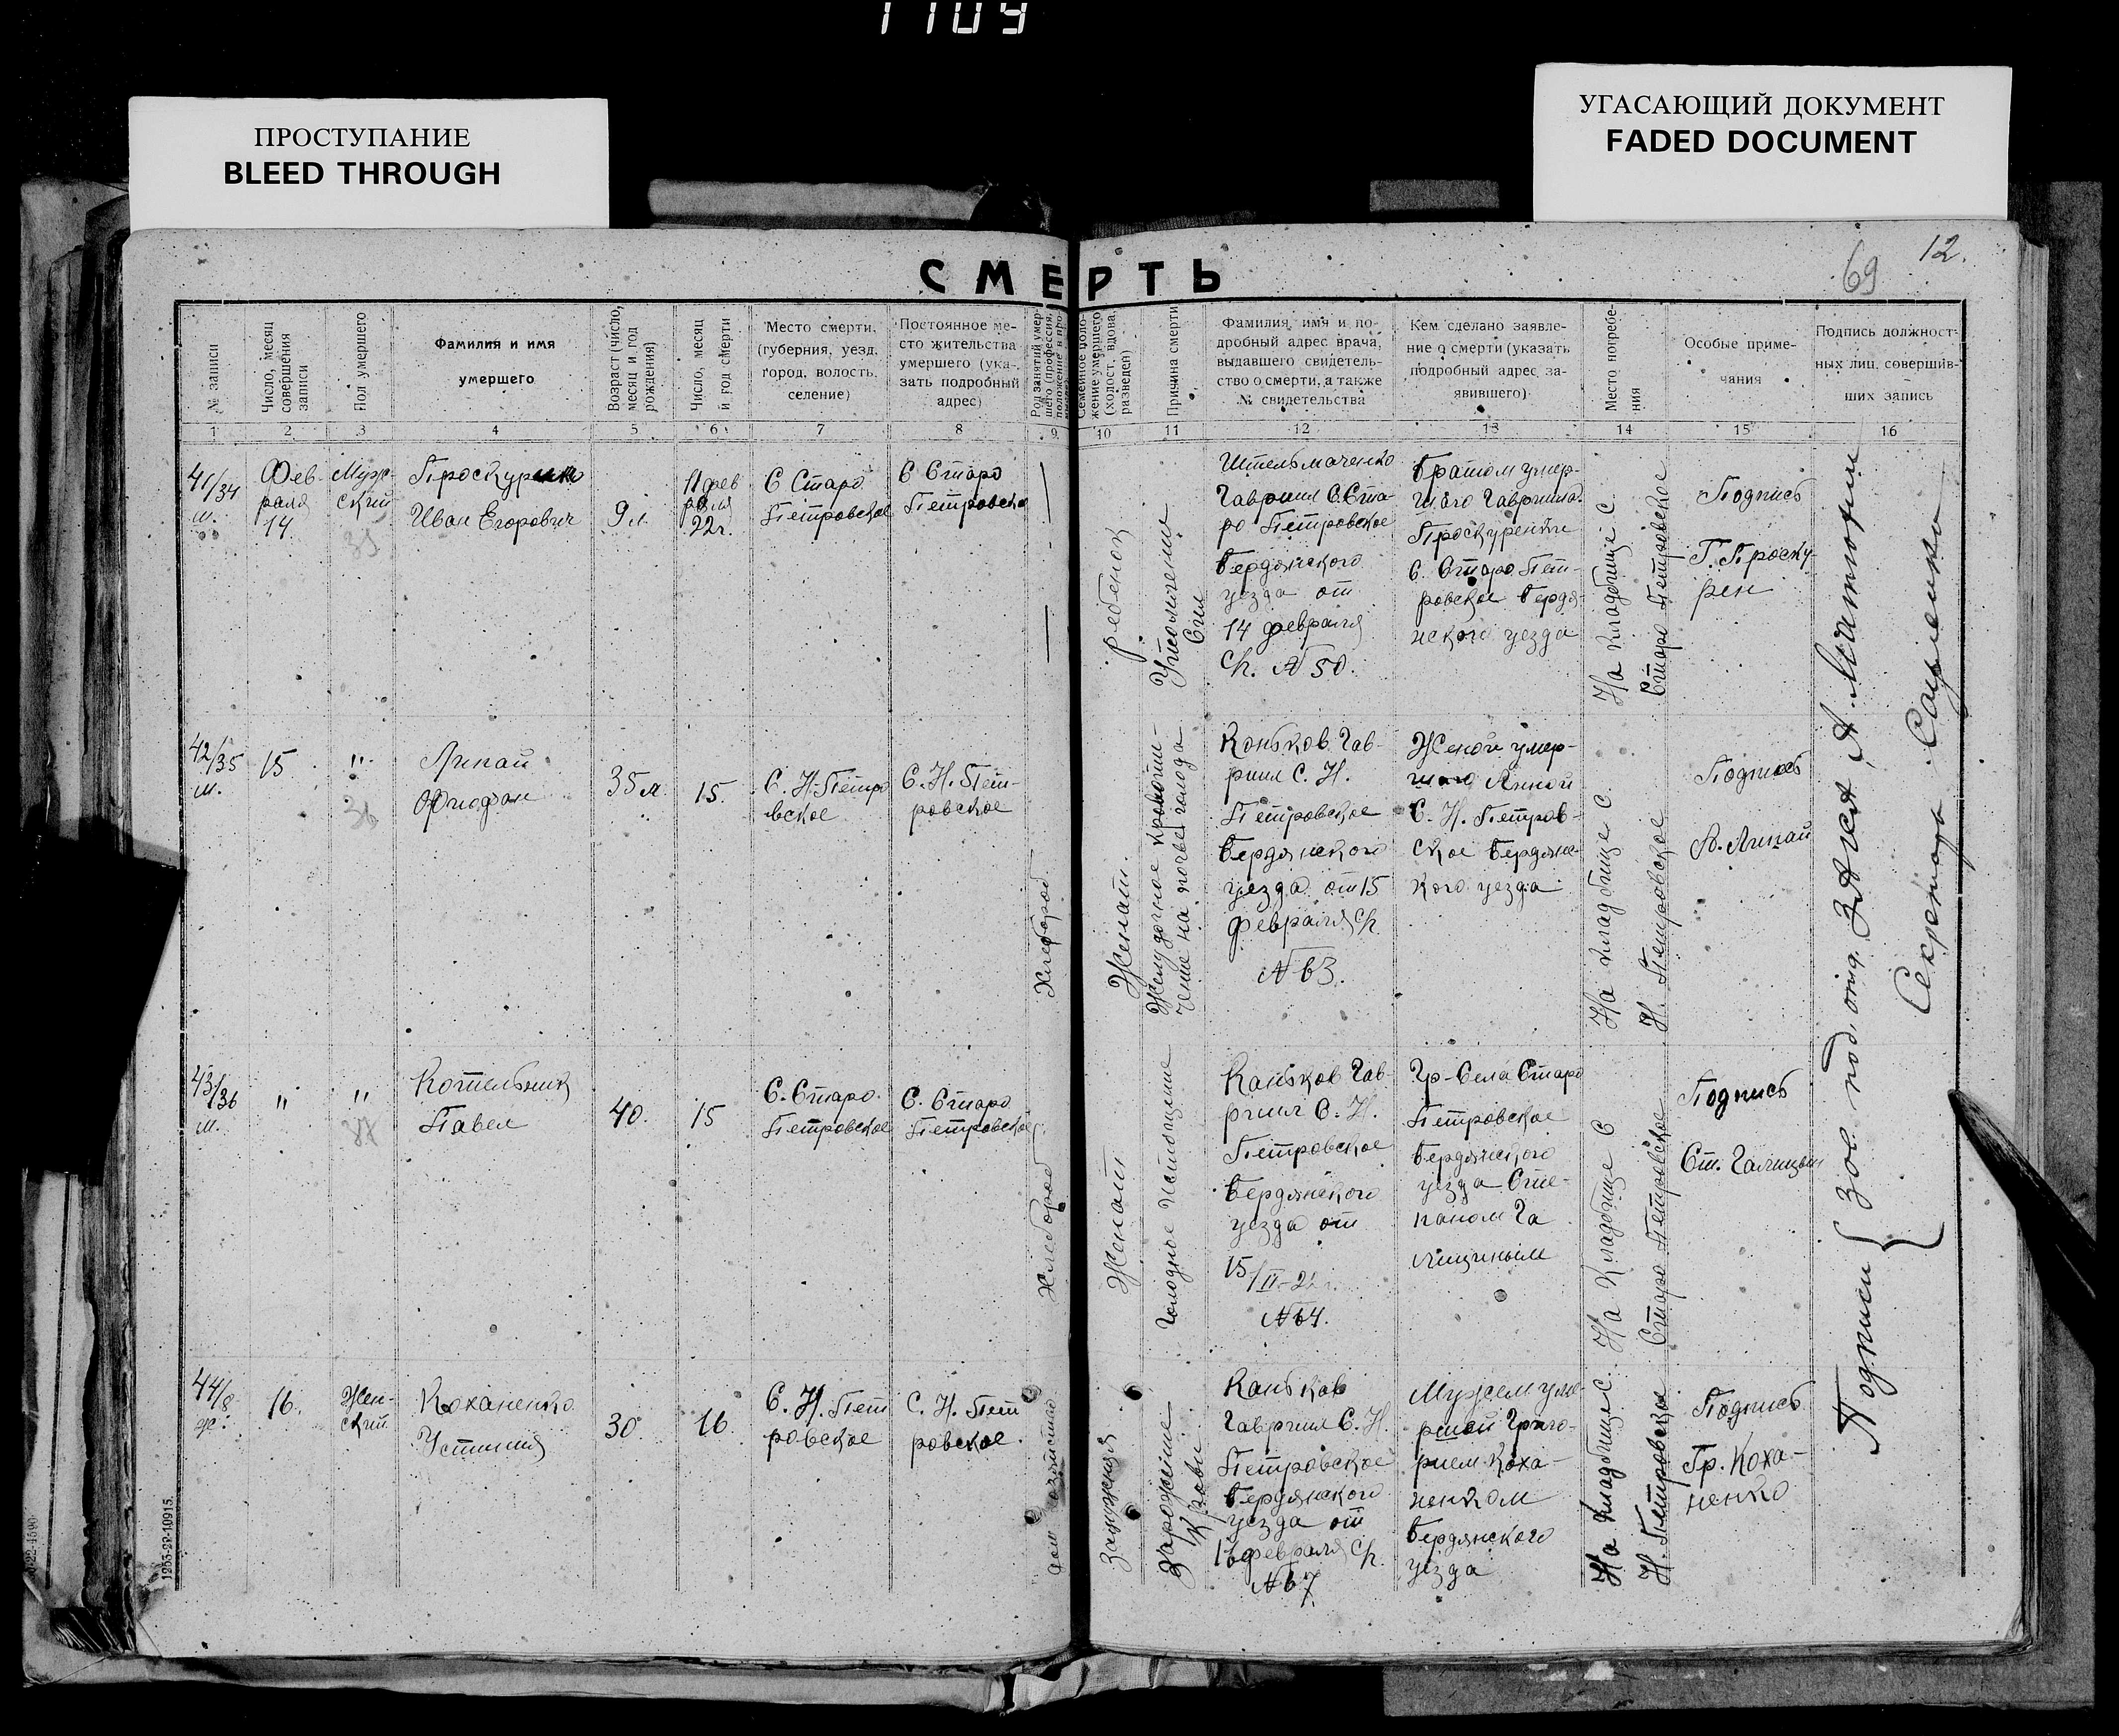 1109
ПРОСТУПАНИЕ
BLEED THROUGH
УГАСАЮЩИЙ ДОКУМЕНТ
FADED DOCUMENT
12.
69
СМЕРТЬ
№ записи
Число, месяц
совершения
записи
Пол умершего
Фамилия и имя
умершего
Возраст (число,
месяц и год
рождения)
Число, месяц
и год смерти
Место смерти,
(губерния, уезд,
город, волость,
селение)
Постоянное ме-
сто жительства
умершего (ука-
зать подробный
адрес)
Род занятий умер-
шего (профессия,
положение в про-
Семейное поло-
жение умершего
(холост, вдова,
разведен)
Причина смерти
Фамилия, имя и по-
дробный адрес врача,
выдавшего свидетель-
ство о смерти, а также
№ свидетельства
Кем сделано заявле-
ние о смерти (указать
подробный адрес за-
явившего)
Место погребе-
ния
Особые приме-
чания
Подпись должност-
ных лиц, совершив-
ших запись
1 2 3 4 5 6 7 8 9 10 11 12 13 14 15 16
41/34
м.
Фев-
раля
14
Муж-
ский
35
Иван Егорович
9 л.
11 фев
раля
22г.
С Старо
Петровское
С Старо
Петровско
ребенок
Гавриил С. Ста-
ро Петровское
Бердянского
уезда от
14 февраля
с/г. № 50.
Братом умер-
шего Гавриилом
С. Старо Пет-
ровское Бердя-
нского уезда
На кладбище С.
Старо Петровское
Подпись
Г. Проску-
рен
42/35
м.
15
"
36
35 л.
15.
С. Н. Петро
вское
С. Н. Пет-
ровское
Хлебороб
Женат.
Желудочное кровоте-
чение на почве голода
Коньков Гав-
риил С. Н.
Петровское
Бердянского
уезда от 15
февраля с/г
№ 63.
Женой умер-
шего Анной
С. Н. Петров-
ское Бердянс-
кого уезда
На кладбище С.
Н. Петровское
Подпись
43/36
м.
"
"
Котельник
Павел
40.
15
С. Старо
Петровское
С. Старо
Петровское
Хлебороб
Женат
Голодное истощение
Коньков Гав-
риил С. Н.
Петровское
Бердянского
уезда от
15/II-22г.
№ 64.
Гр-Села Старо
Петровское
Бердянского
уезда Сте-
паном Га
лициным
На кладбище С
Старо Петровское
Подпись
Ст. Галицын
44/8
ж.
16.
Жен-
ский
Коханенко
Устиния
30.
16.
С. Н. Пет
ровское
С. Н. Пет
ровское.
Дом хозяйство
Замужняя
Заражение
крови.
Коньков
Гавриил С. Н.
Петровское
Бердянского
уезда от
16 февраля с/г.
№ 67.
Мужем уме-
ршей Григо-
рием Коха-
ненком
Бердянского
уезда
На кладбище С.
Н. Петровское
Подпись
Гр. Коха-
ненко
Подписи { Зав. под отд. ЗАГСА А.
Секретарь
1253-22-10915.